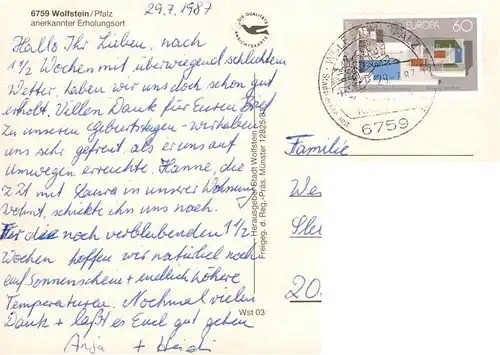 6759 Wolfstein/Pfalz
anerkannter Erholungsort
29.7.1987
DIE QUALITÄTS
ANSICHTSKARTE
EUROPA 60
6759
Hallo Ihr Lieben, nach
1 1/2 Wochen mit überwiegend schlechtem
Wetter, haben wir uns doch schon gut
erholt. Villen Dank für Euren Brief
zu unseren Geburtstagen - wir haben
uns sehr gefreut als er uns auf
Umwegen erreichte. Hanne, die
zZt mit Laura in unserer Wohnung
wohnt, schickte ihn uns nach.
Für die noch verbleibenden 1 1/2
Wochen hoffen wir natürlich noch
auf Sonnenschein + endlich höhere
Temperaturen. Nochmal vielen
Dank + laßt es Euch gut gehen
Anja + Heidi
Herausgeber: Stadt Wolfstein
Freigeg. d. Reg.-Präs. Münster 12825/84
Wst 03
Familie
We
Ste
20